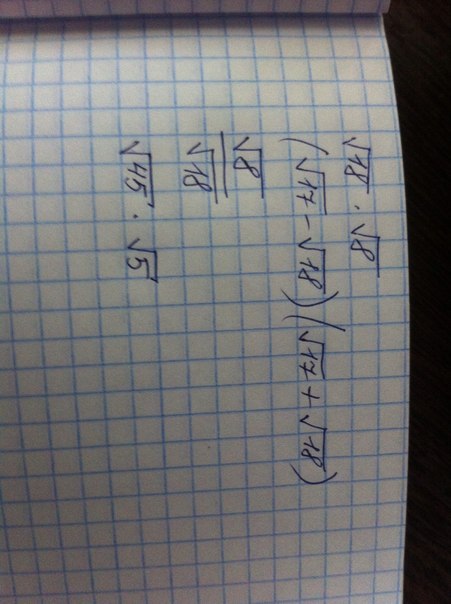 √18 · √8
(√17 − √18)(√17 + √18)
√8
√18
√45 · √5